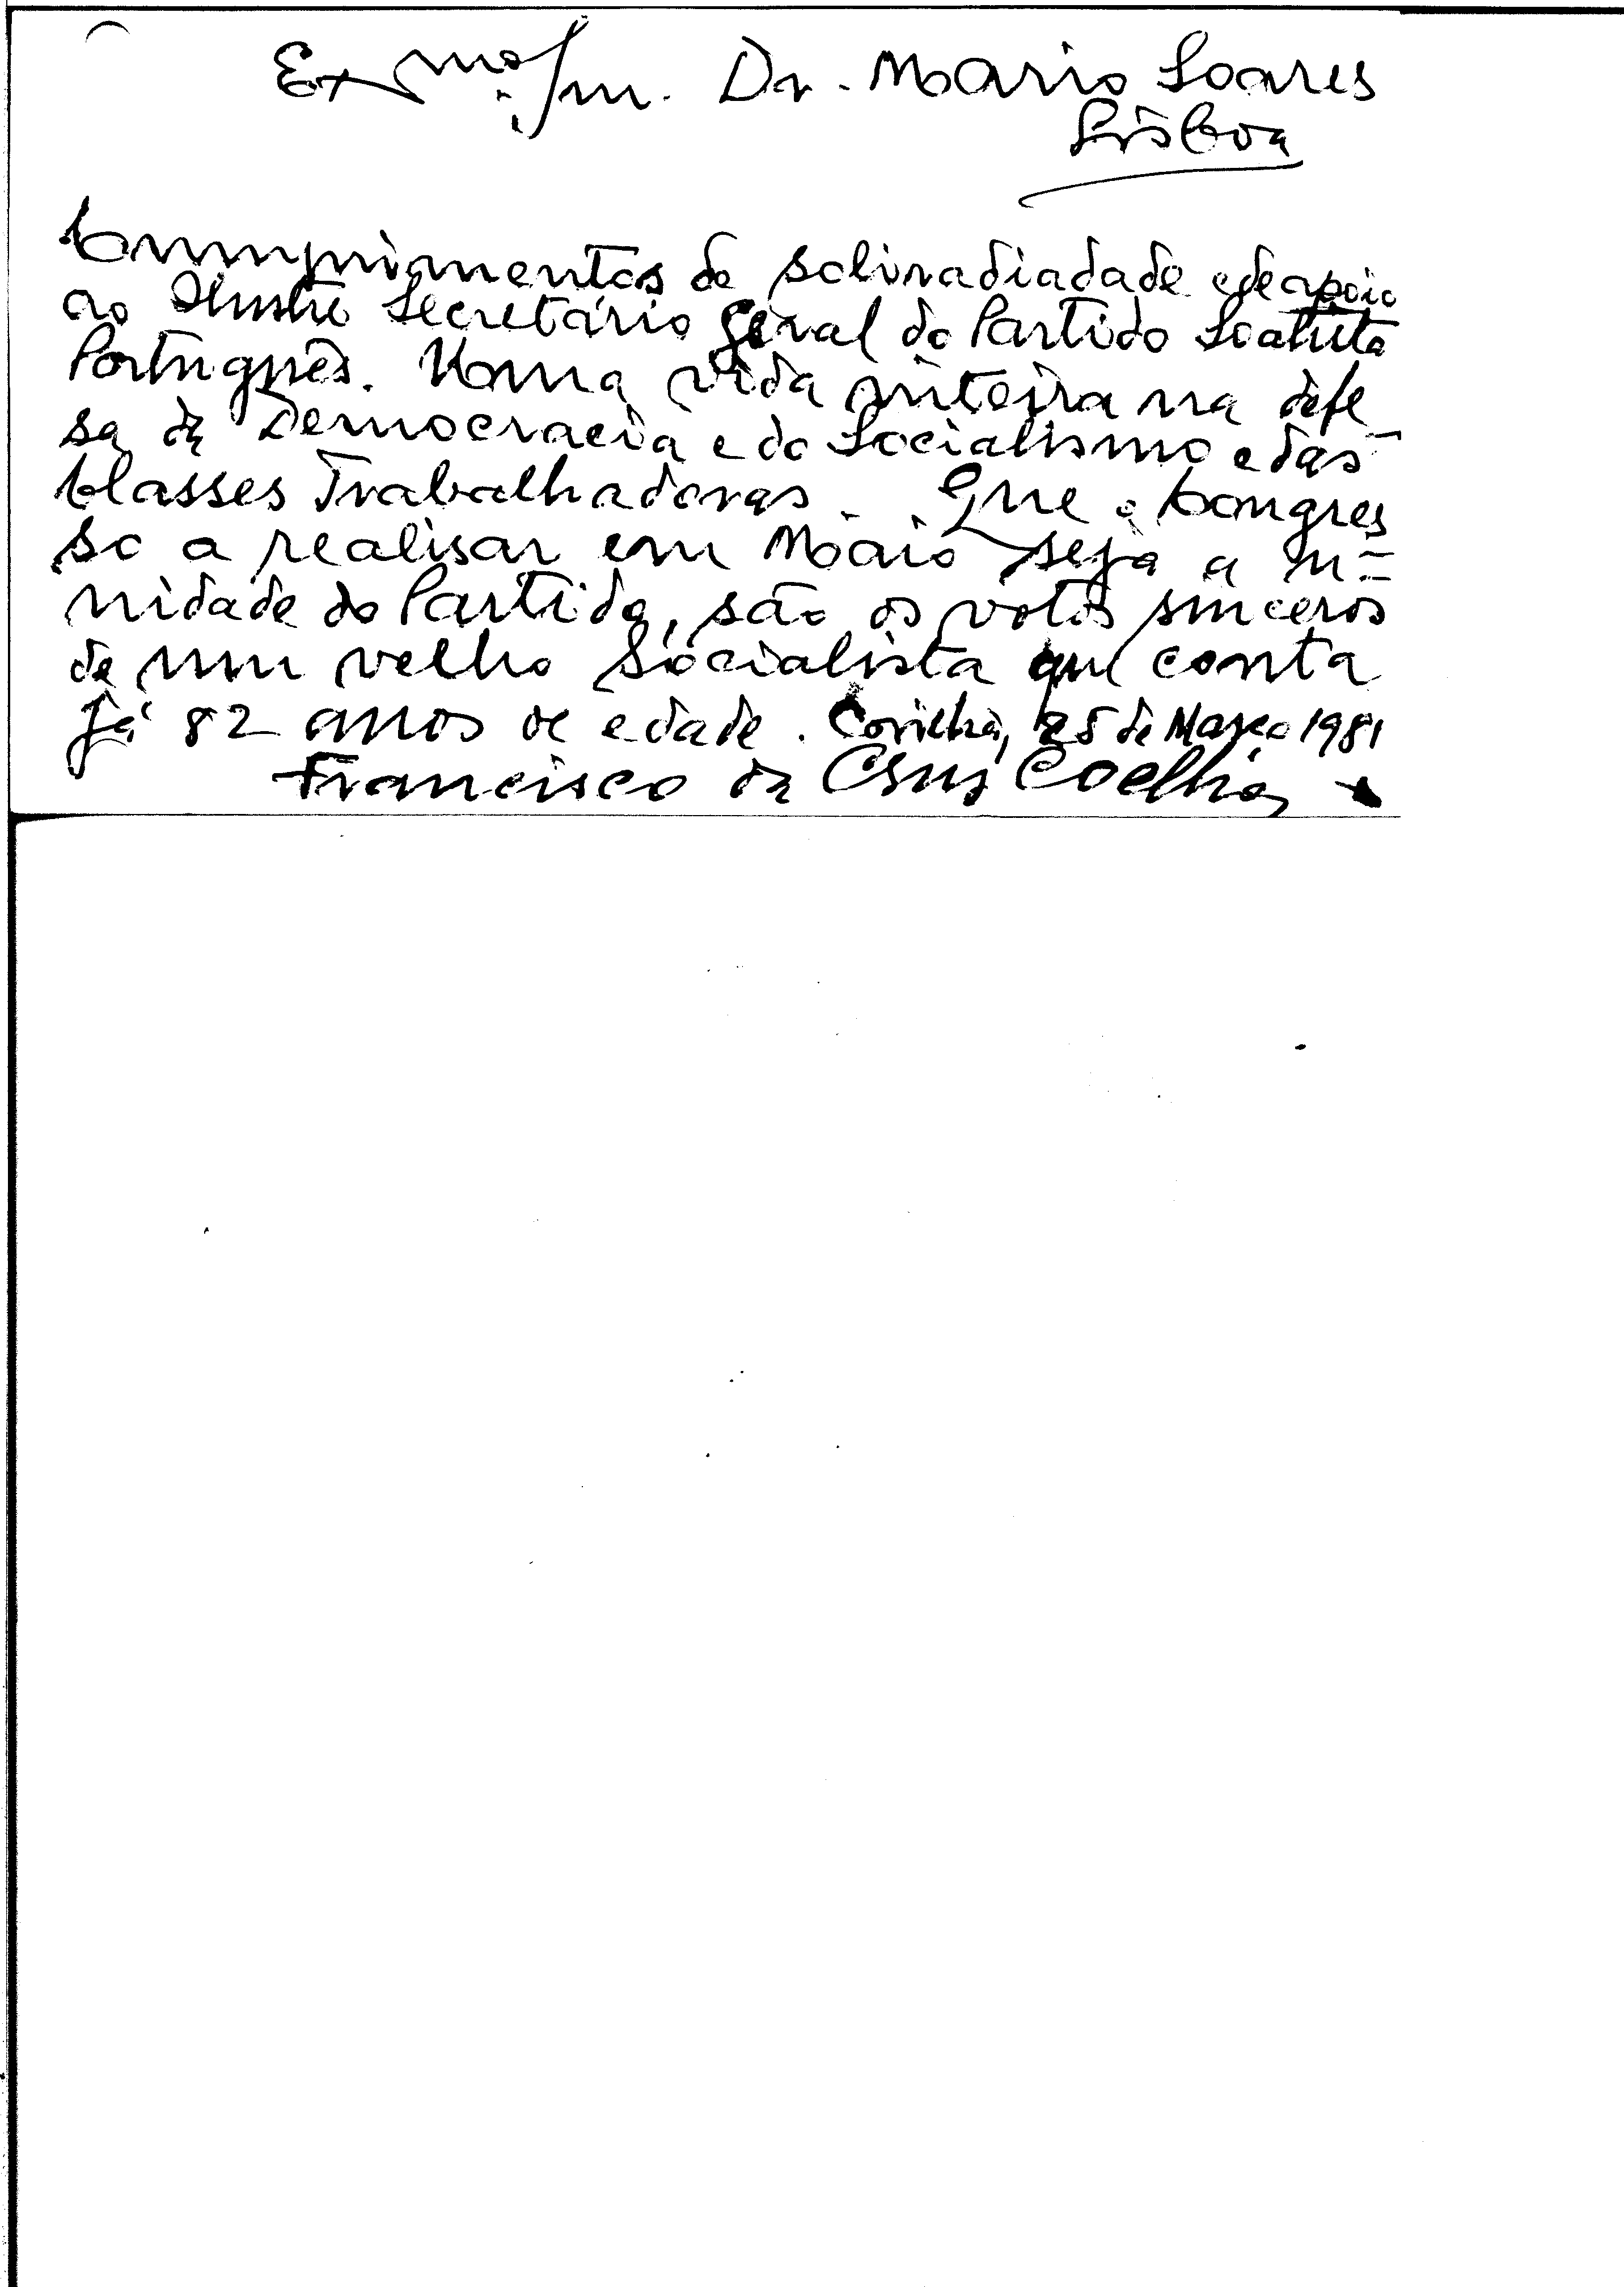 Exmo. Sm. Dr. Mario Soares
Lisboa
Cumprimentos de soliradiadade e de apoio
ao Ilustre Secretário Geral do Partido Socalista
Português. Uma vida inteira na defe
sa da Democracia e do Socialismo e das
Classes Trabalhadoras. Que o Congres
so a realisar em Maio seja a u=
nidade do Partido, são os votos sinceros
de um velho Socialista que conta
já 82 anos de edade. Covilhã, 25 de Março 1981
Francisco da Coelho